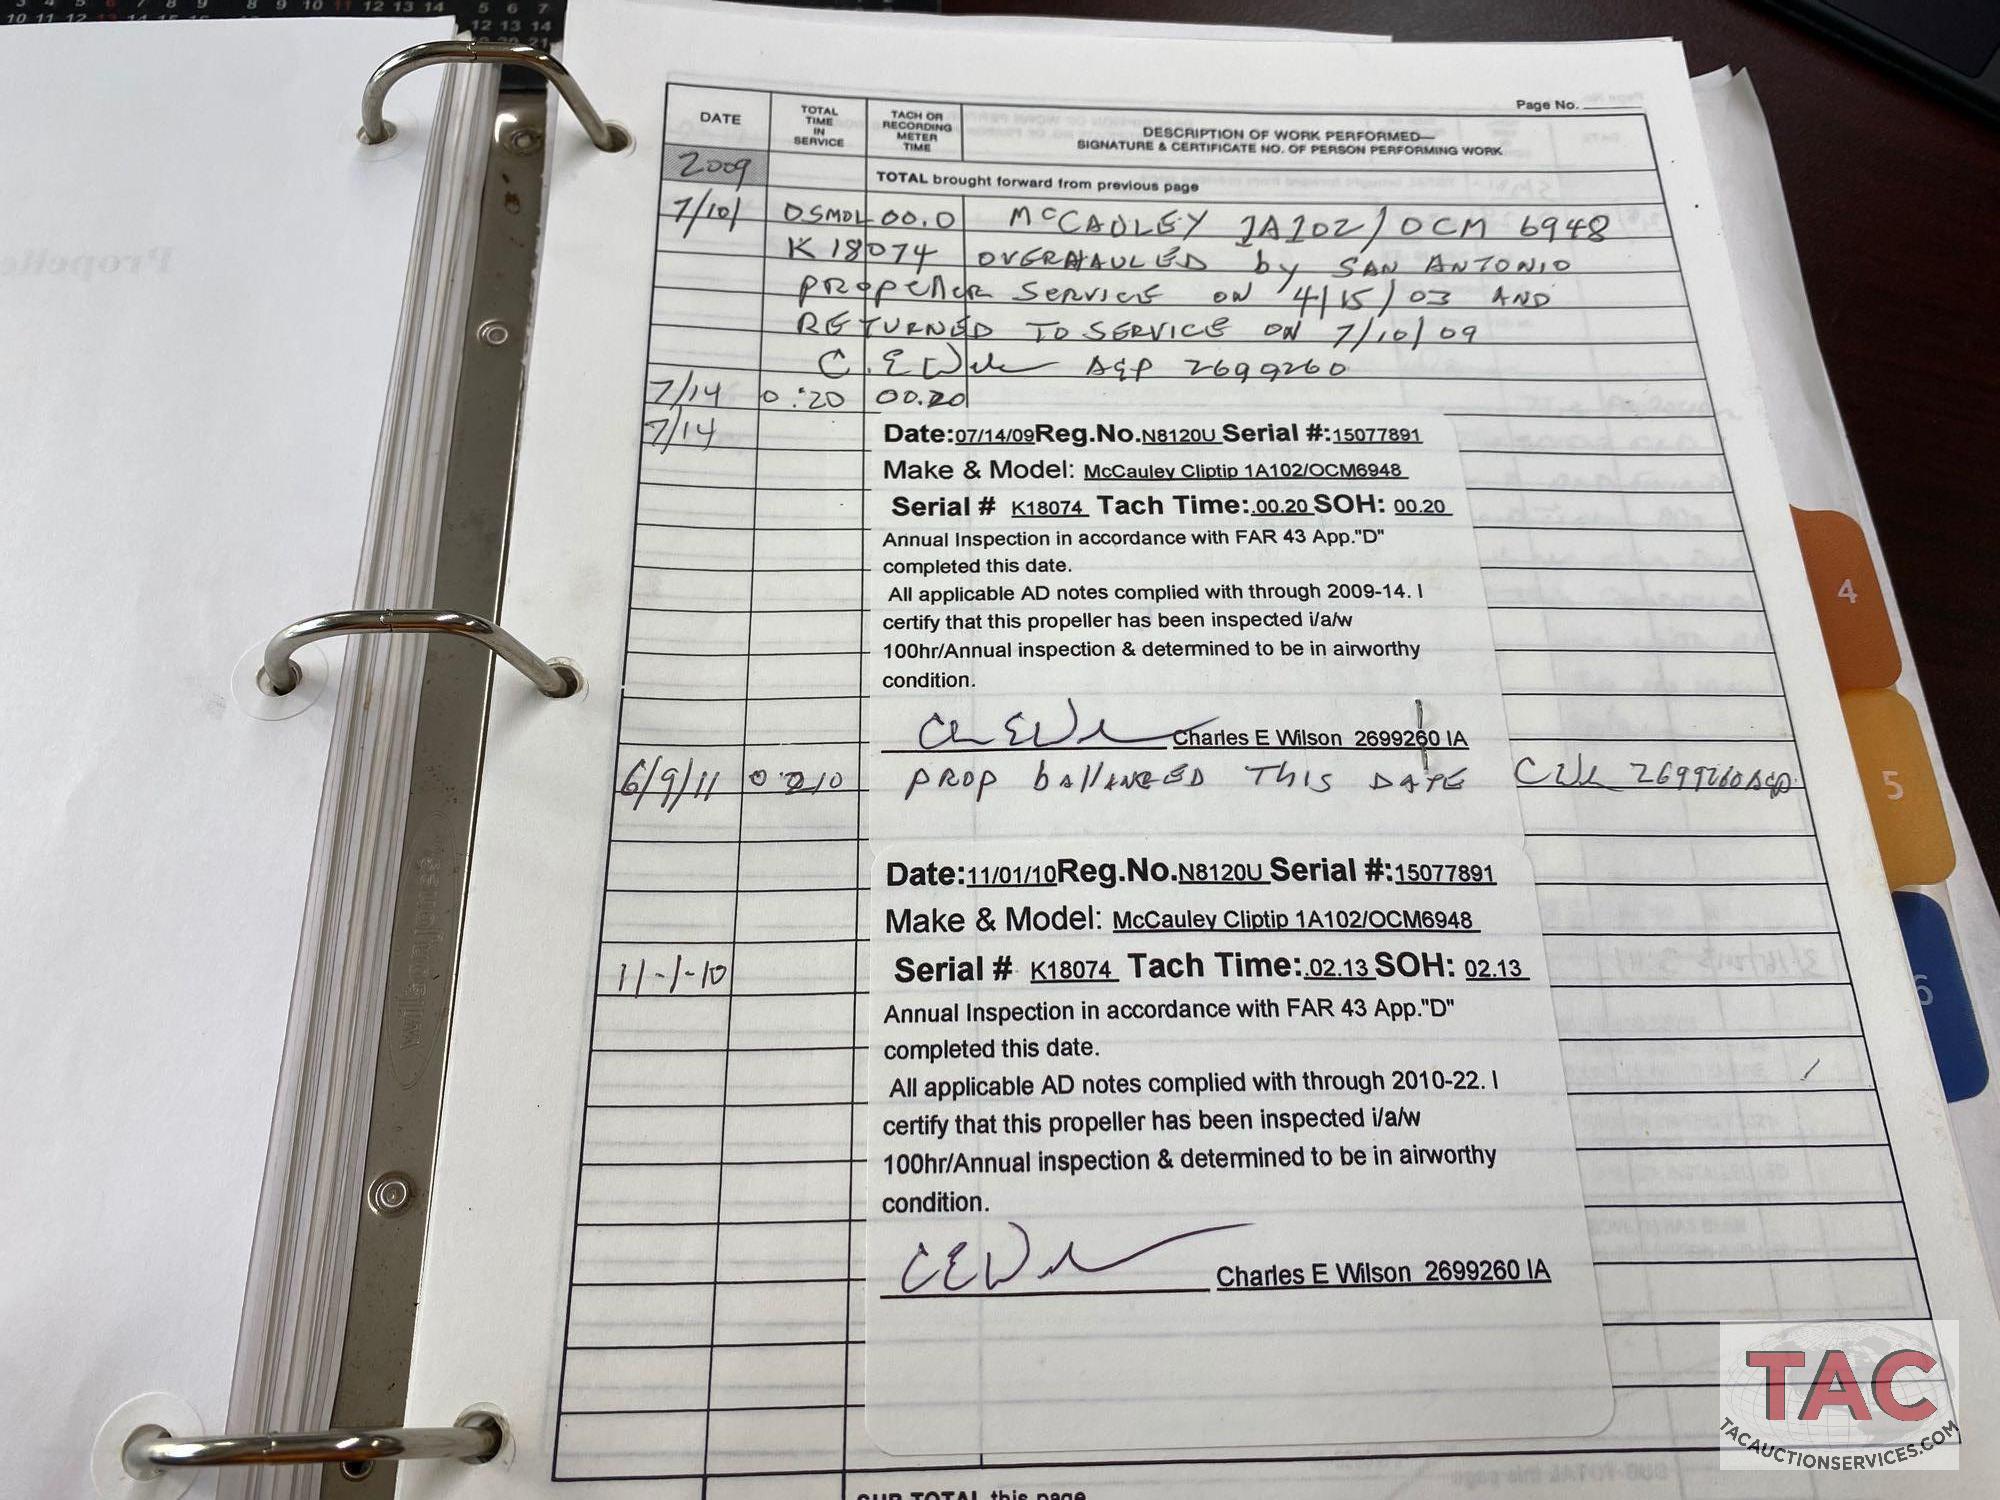 Page No.
DATE
TOTAL TIME IN SERVICE
TACH OR RECORDING METER TIME
DESCRIPTION OF WORK PERFORMED—
SIGNATURE & CERTIFICATE NO. OF PERSON PERFORMING WORK
2009
TOTAL brought forward from previous page
7/10/ OSMOH 00.0 McCAULEY 1A102/OCM 6948
K18074 OVERHAULED by SAN ANTONIO
PROPELLER SERVICE ON 4/15/03 AND
RETURNED TO SERVICE ON 7/10/09
A&P 2699260
7/14 0.20 00.20
7/14
Date:07/14/09Reg.No.N8120U Serial #:15077891
Make & Model: McCauley Cliptip 1A102/OCM6948
Serial # K18074 Tach Time:.00.20 SOH: 00.20
Annual Inspection in accordance with FAR 43 App."D"
completed this date.
All applicable AD notes complied with through 2009-14. I
certify that this propeller has been inspected i/a/w
100hr/Annual inspection & determined to be in airworthy
condition.
Charles E Wilson 2699260 IA
6/9/11 PROP bAllANCED THIS DATE 2699260 A&P
Date:11/01/10Reg.No.N8120U Serial #:15077891
Make & Model: McCauley Cliptip 1A102/OCM6948
11-1-10
Serial # K18074 Tach Time:.02.13 SOH: 02.13
Annual Inspection in accordance with FAR 43 App."D"
completed this date.
All applicable AD notes complied with through 2010-22. I
certify that this propeller has been inspected i/a/w
100hr/Annual inspection & determined to be in airworthy
condition.
Charles E Wilson 2699260 IA
SUB TOTAL this page
4
5
6
wilsonjones
TAC
TACAUCTIONSERVICES.COM